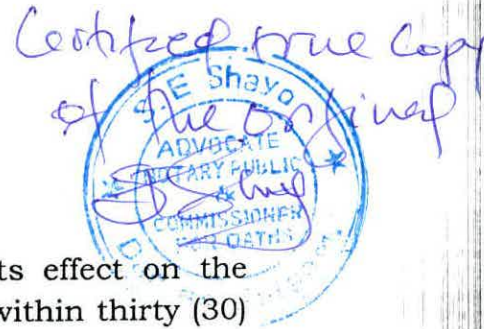 Certified true Copy
of the original
S. E Shayo
ADVOCATE
NOTARY PUBLIC
&
COMMISSIONER
FOR OATHS
ts effect on the
within thirty (30)